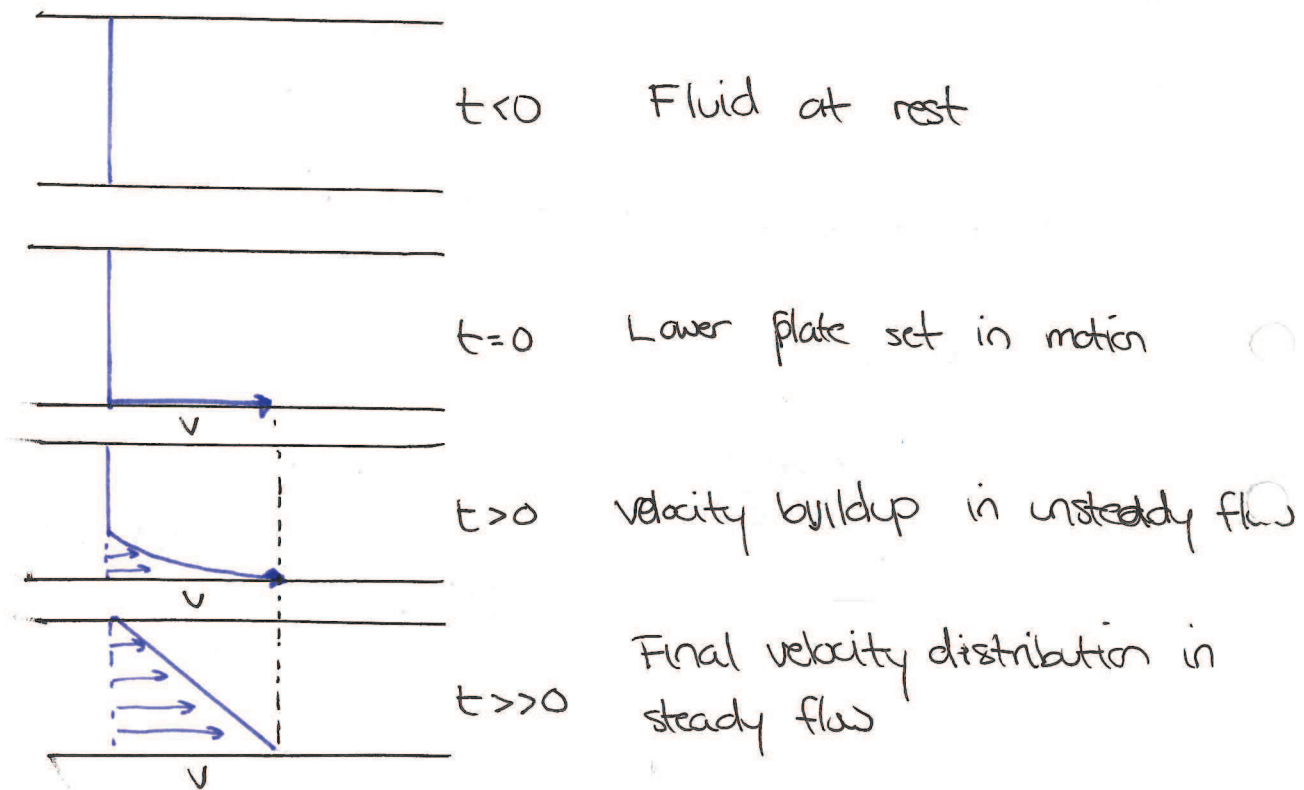 t<0 Fluid at rest
t=0 Lower plate set in motion
V
t>0 velocity buildup in unsteady flow
V
t>>0 Final velocity distribution in
steady flow
V